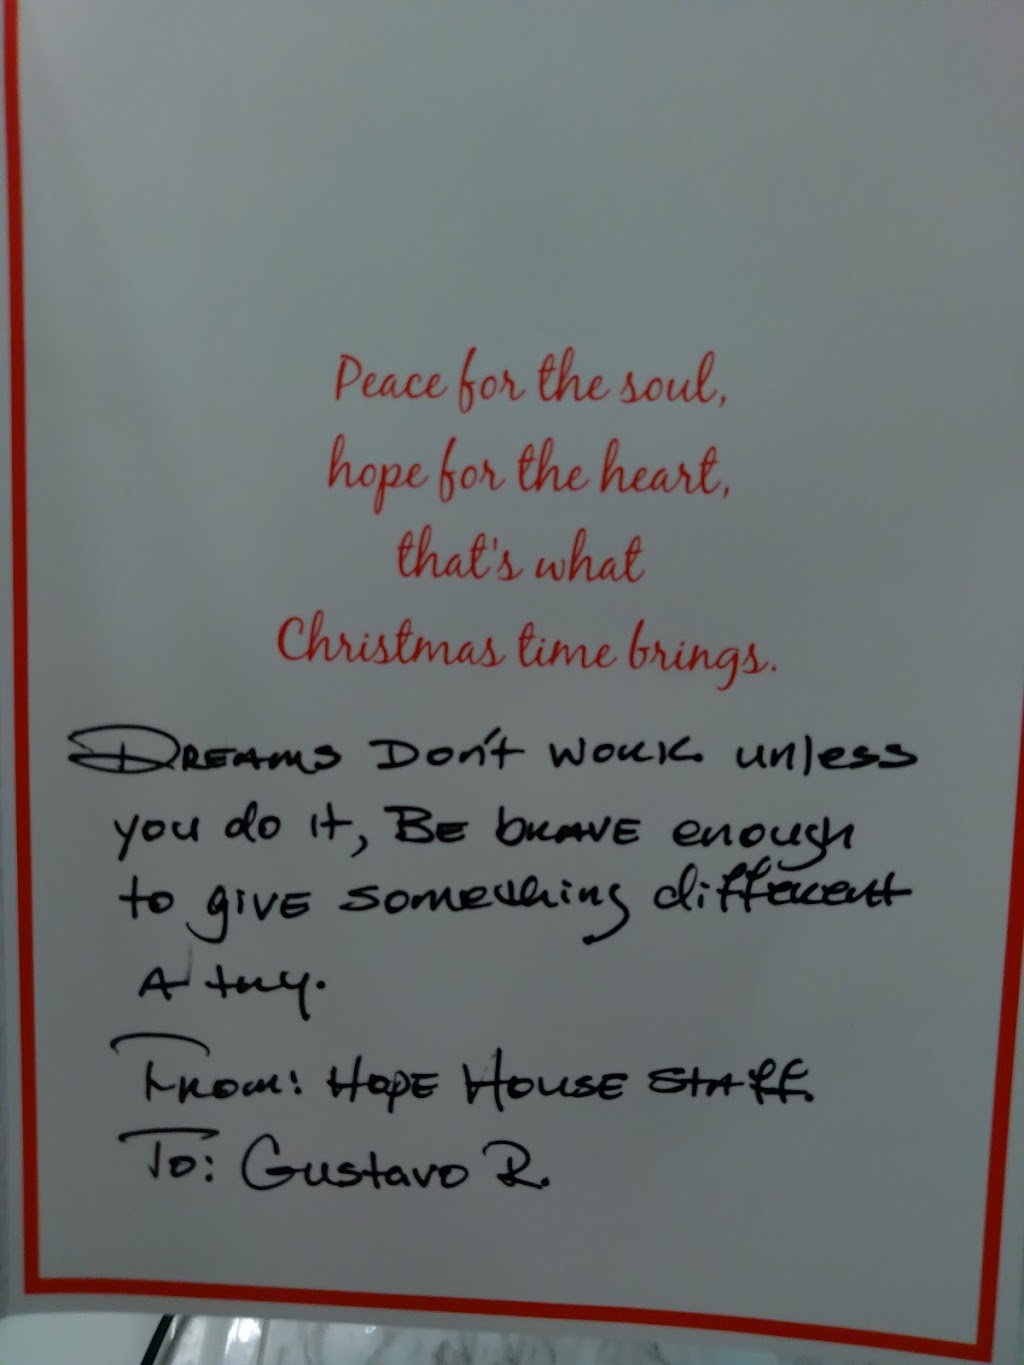 Peace for the soul,
hope for the heart,
that's what
Christmas time brings.
DREAMS Don't work unless
you do it, BE brAVE enough
to gIVE something different
A try.
From: HOPE HOUSE STAFF.
To: Gustavo R.